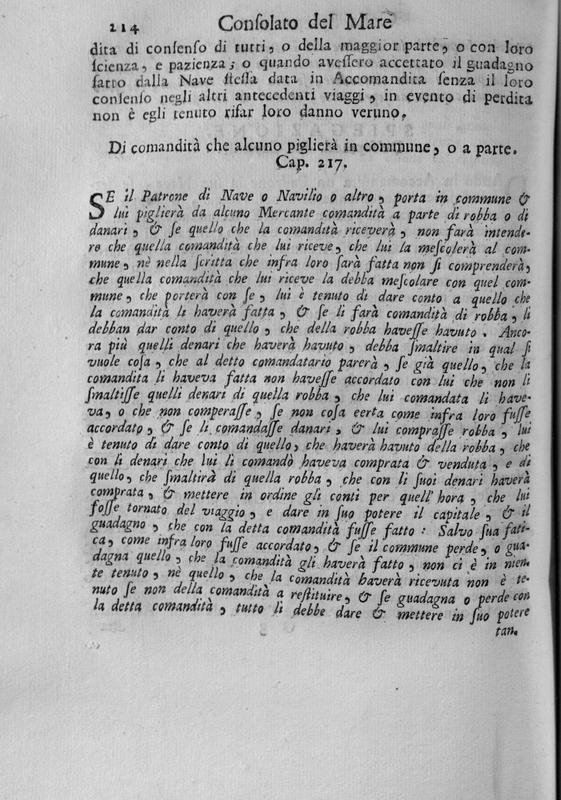 214 Consolato del Mare
dita di consenso di tutti, o della maggior parte, o con loro
scienza, e pazienza; o quando avessero accettato il guadagno
fatto dalla Nave stessa data in Accomandita senza il loro
consenso negli altri antecedenti viaggi, in evento di perdita
non è egli tenuto rifar loro danno veruno.
Di comandità che alcuno piglierà in commune, o a parte.
Cap. 217.
SE il Patrone di Nave o Navilio o altro, porta in commune &
lui piglierà da alcuno Mercante comandità a parte di robba o di
danari, & se quello che la comandità riceverà, non farà intende-
re che quella comandità che lui riceve, che lui la mescolerà al com-
mune, nè nella scritta che infra loro sarà fatta non si comprenderà,
che quella comandità che lui riceve la debba mescolare con quel com-
mune, che porterà con se, lui è tenuto di dare conto a quello che
la comandità li haverà fatta, & se li farà comandità di robba, li
debban dar conto di quello, che della robba havesse havuto. Anco-
ra più quelli denari che haverà havuto, debba smaltire in qual si
vuole cosa, che al detto comandatario parerà, se già quello, che la
comandita li haveva fatta non havesse accordato con lui che non li
smaltisse quelli denari di quella robba, che lui comandata li have-
va, o che non comperasse, se non cosa certa come infra loro fusse
accordato, & se li comandasse danari, & lui comprasse robba, lui
è tenuto di dare conto di quello, che haverà havuto della robba, che
con li denari che lui li comandò haveva comprata & venduta, e di
quello, che smaltirà di quella robba, che con li suoi denari haverà
comprata, & mettere in ordine gli conti per quell' hora, che lui
fosse tornato del viaggio, e dare in suo potere il capitale, & il
guadagno, che con la detta comandità fusse fatto: Salvo sua fati-
ca, come infra loro fusse accordato, & se il commune perde, o gua-
dagna quello, che la comandità gli haverà fatto, non ci è in nien-
te tenuto, nè quello, che la comandità haverà ricevuta non è te-
nuto se non della comandità a restituire, & se guadagna o perde con
la detta comandità, tutto li debbe dare & mettere in suo potere
tan-